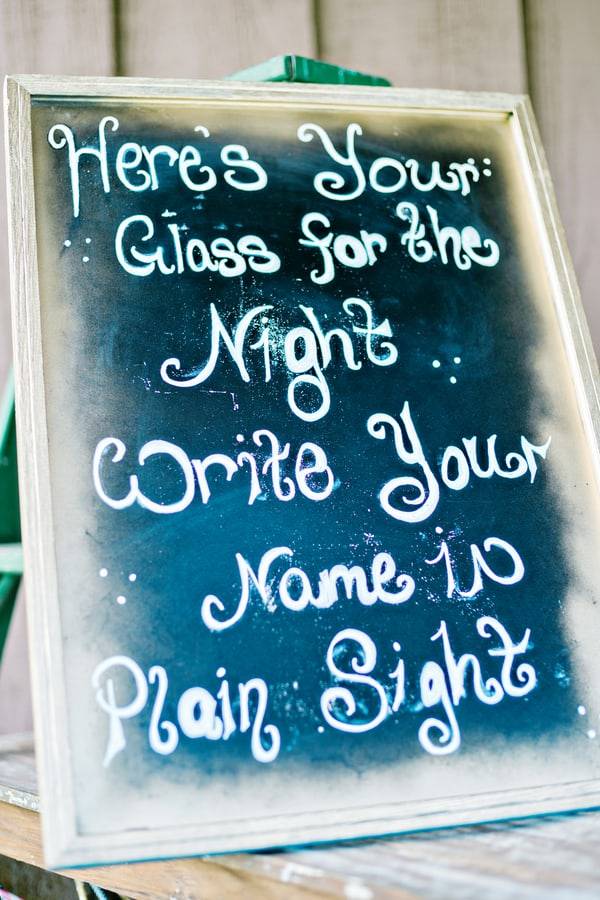 Here's Your:
Glass for the
Night
Write Your
Name in
Plain Sight